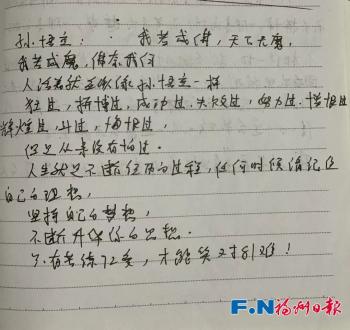 孙悟空: 我若成佛,天下无魔,
我若成魔,佛奈我何
人活着就应该像孙悟空一样
狂过,拼搏过,成功过,失败过,努力过,憎恨过
辉煌过,斗过,悔恨过
但是从来没有怕过。
人生就是不断经历的过程,任何时候请记住
自己的理想,
坚持自己的梦想,
不断升华你的思想.
只有苦练72变,才能笑对81难!
F.N福州日报